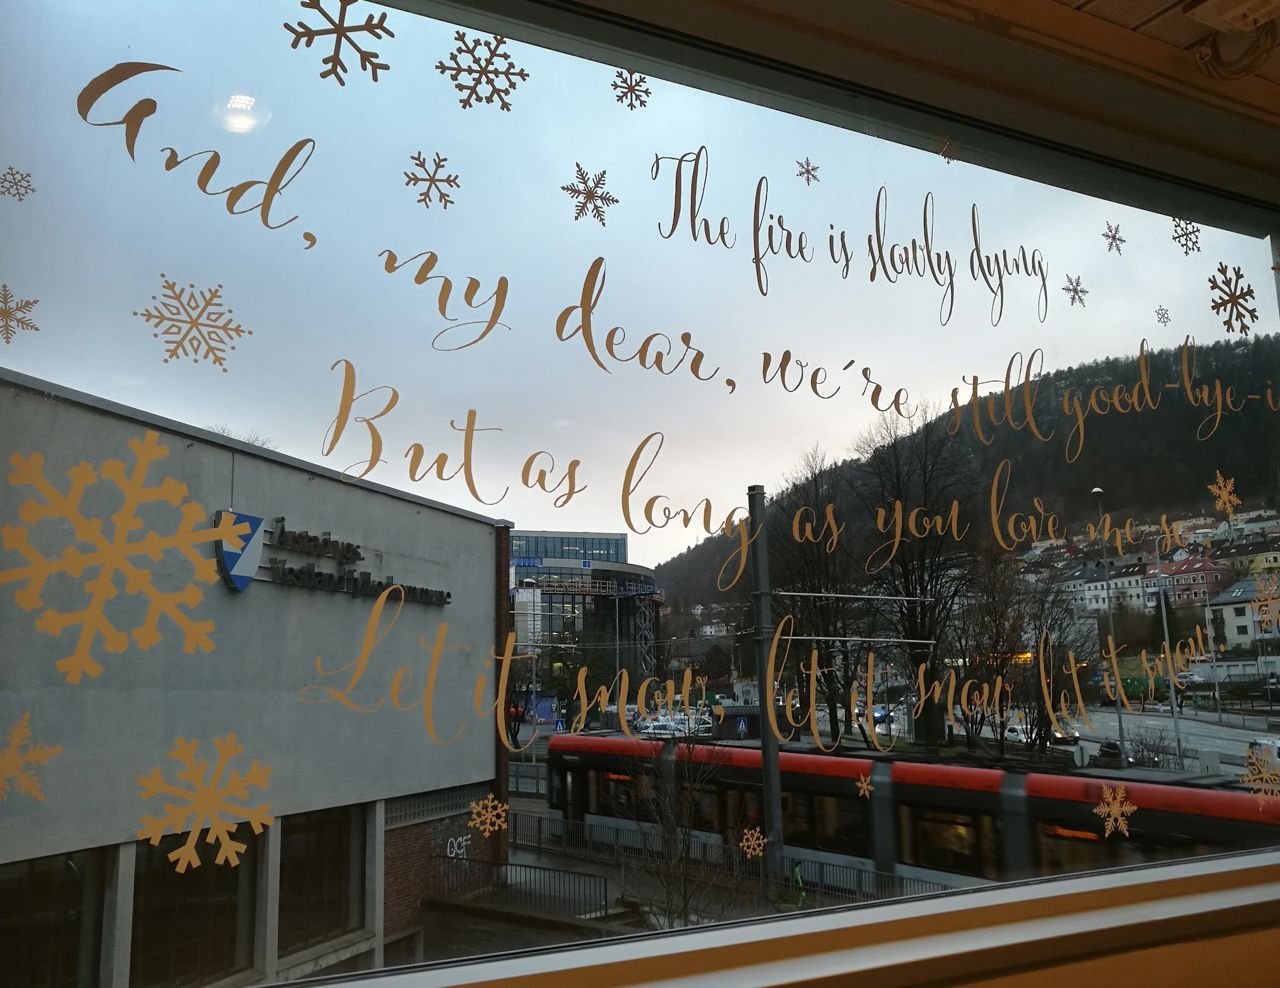 The fire is slowly dying
And, my dear, we´re still good-bye-i
But as long as you love me so
Let it snow, let it snow, let it snow.
Årstadhus
Vestlandshallene
GCF